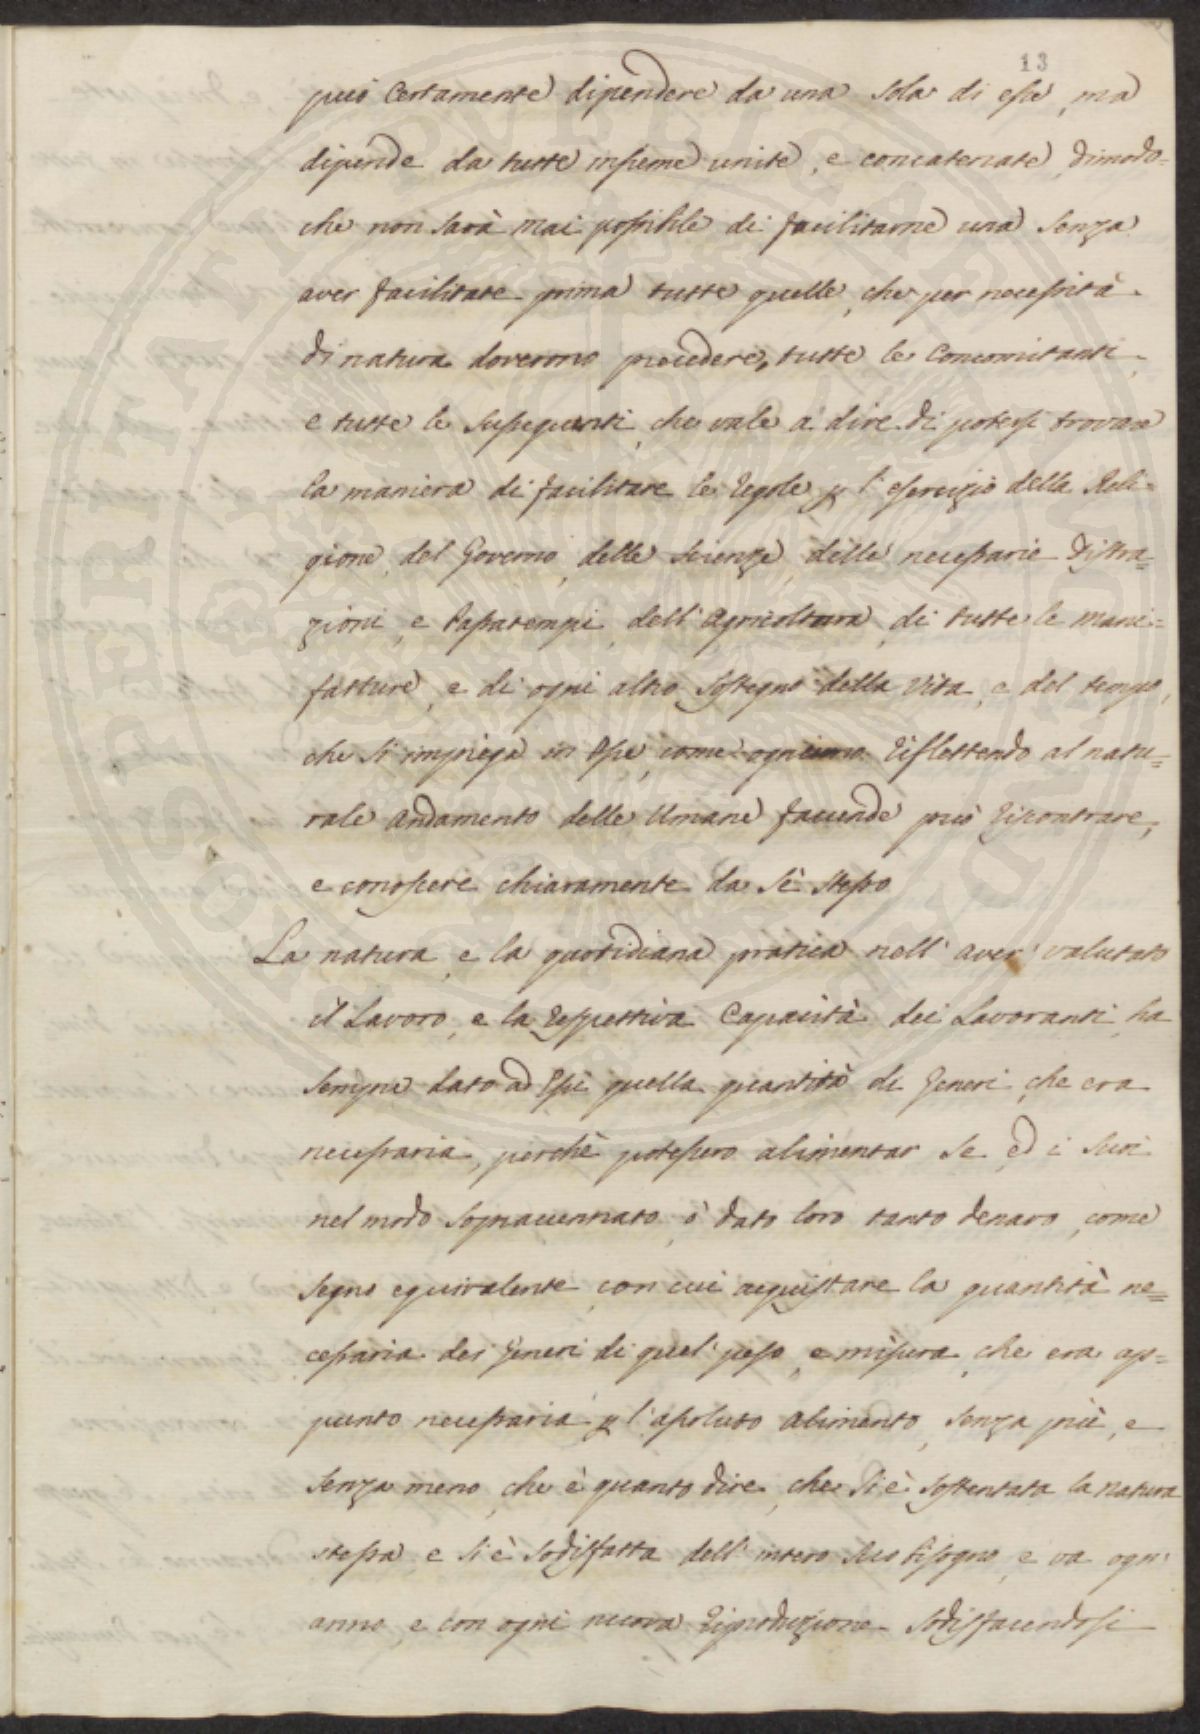 13
può Certamente dipendere da una sola di esse, ma
dipende da tutte insieme unite, e concatenate, dimodo=
che non sarà mai possibile di facilitarne una senza
aver facilitate prima tutte quelle, che per necessità
di natura doverono precedere, tutte le Concomitanti,
e tutte le Susseguenti, che vale a dire di potersi trovare
la maniera di facilitare le Regole p l'esercizio della Reli=
gione, del Governo, delle Scienze, delle necessarie Distra=
zioni, e Passatempi, dell'Agricoltura, di tutte le Mani=
fatture, e di ogni altro Sostegno della Vita, e del tempo,
che si impiega in Esse, come ognuno Riflettendo al natu=
rale andamento delle Umane faccende può Riscontrare,
e conoscere chiaramente da Sè stesso
La natura, e la quotidiana pratica nell'aver valutato
il Lavoro, e la Respettiva Capacità dei Lavoranti, ha
Sempre dato ad Essi quella quantità di Generi, che era
necessaria, perchè potessero alimentar se, ed i Suoi
nel modo Sopraccennato, ò dato loro tanto denaro, come
Segno equivalente, con cui acquistare la quantità ne=
cessaria dei Generi di quel peso, e misura, che era ap=
punto necessaria p l'assoluto alimento, Senza più, e
Senza meno, che è quanto dire, che Si è Sostentata la natura
stessa, e Si è Sodisfatta dell'intero Suo bisogno, e va ogn'
anno, e con ogni nuova Riproduzione Sodisfacendosi